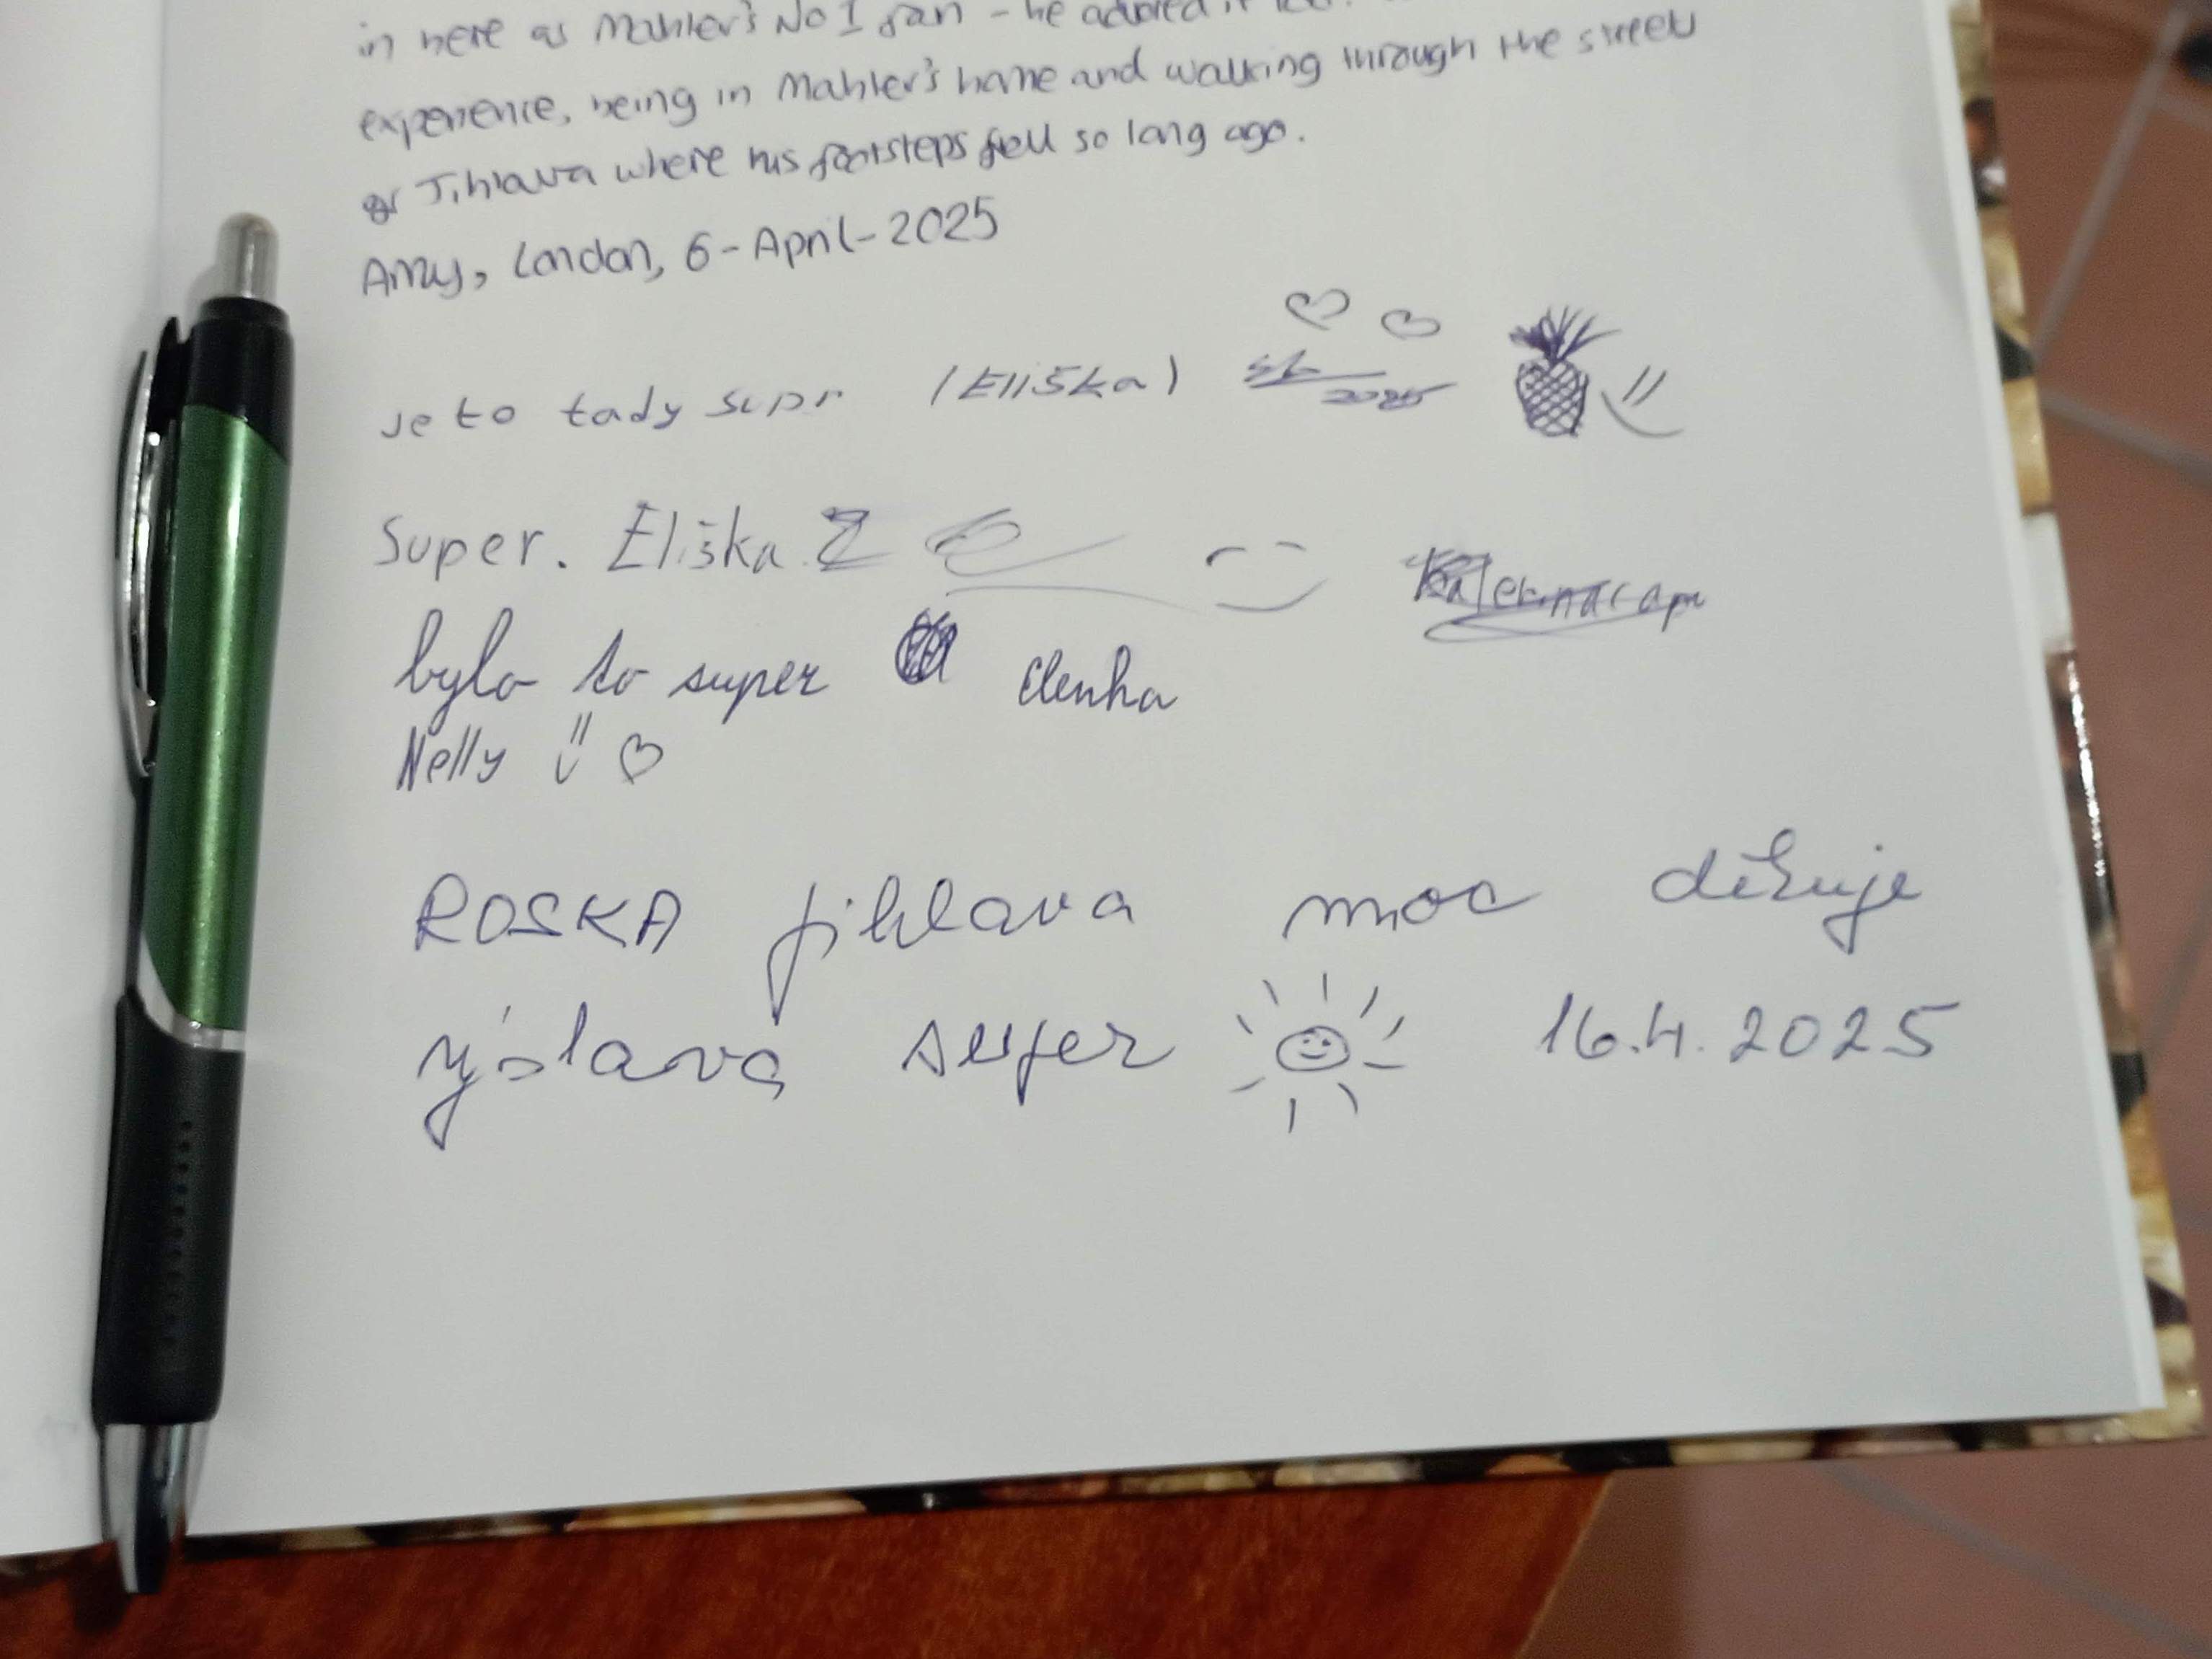 in here as Mahler's No 1 fan - he adored it
experience, being in Mahler's home and walking through the streets
of Jihlava where his footsteps fell so long ago.
Amy, London, 6-April-2025
Je to tady supr (Eliška) 2025
Super. Eliška Z
bylo to super Elenka
Nelly
ROSKA Jihlava moc děkuje
výstava super 16.4.2025